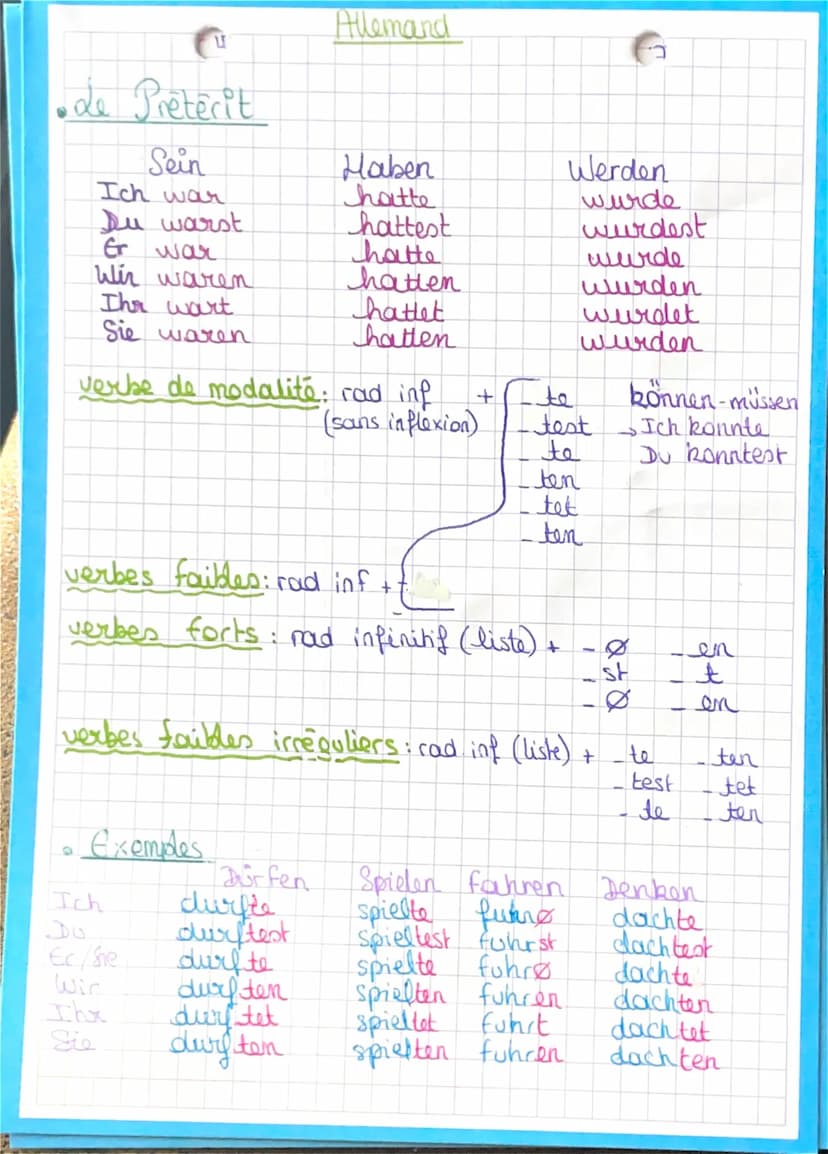 Allemand
• Le Prétérit
Sein Haben Werden
Ich war hatte wurde
Du warst hattest wurdest
Er war hatte wurde
Wir waren hatten wurden
Ihr wart hattet wurdet
Sie waren hatten wurden
verbe de modalité: rad inf + - te können-müssen
(sans inflexion) - test → Ich konnte
- te Du konntest
- ten
- tet
- ten
verbes faibles: rad inf +
verbes forts : rad infinitif (liste) + - Ø - en
- st - t
- Ø - en
verbes faibles irréguliers : rad inf (liste) + - te - ten
- test - tet
- te - ten
• Exemples
Dürfen Spielen Fahren Denken
Ich durfte spielte fuhrØ dachte
Du durftest spieltest fuhrst dachtest
Er/Sie durfte spielte fuhrØ dachte
Wir durften spielten fuhren dachten
Ihr durftet spieltet fuhrt dachtet
Sie durften spielten fuhren dachten